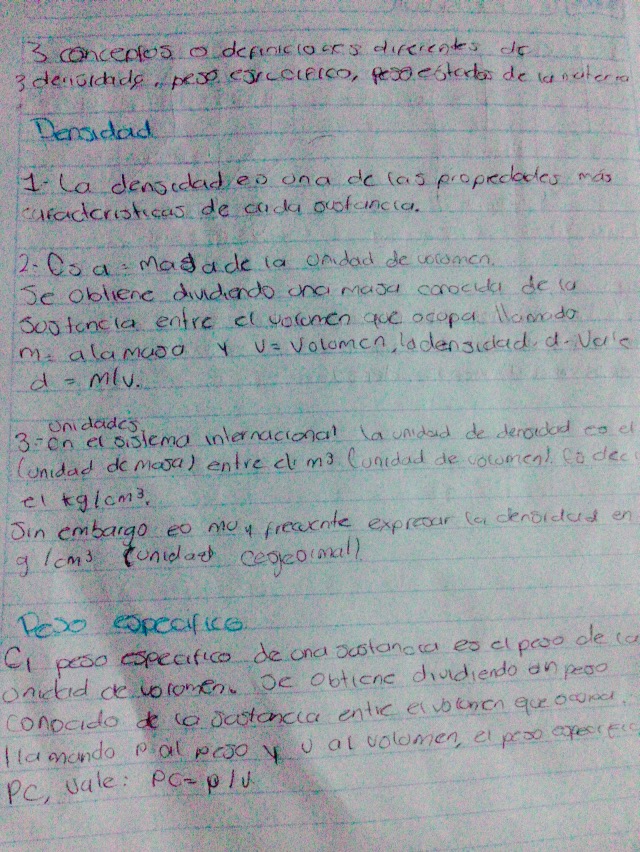 3 conceptos o definiciones diferentes de
3 densidade, peso especifico, peso estados de la materia
Densidad
1- La densidad es una de las propiedades más
caracteristicas de cada sustancia.
2- Es a = Masa de la unidad de volumen.
Se obtiene dividiendo una masa conocida de la
sustancia entre el volumen que ocupa llamado
m= a la masa y V= Volumen, la densidad d- Vale
d = m/v.
unidades
3- En el sistema internacional la unidad de densidad es el
(unidad de masa) entre el m3 (unidad de volumen). Es deci
el kg/cm3.
Sin embargo es muy frecuente expresar la densidad en
g/cm3 (unidad cegesimal)
Peso especifico
El peso especifico de una sustancia es el peso de la
unidad de volumen. Se obtiene dividiendo un peso
conocido de la sustancia entre el volumen que ocupa.
llamando p al peso y v al volumen, el peso especific
PC, Vale: PC= p/v